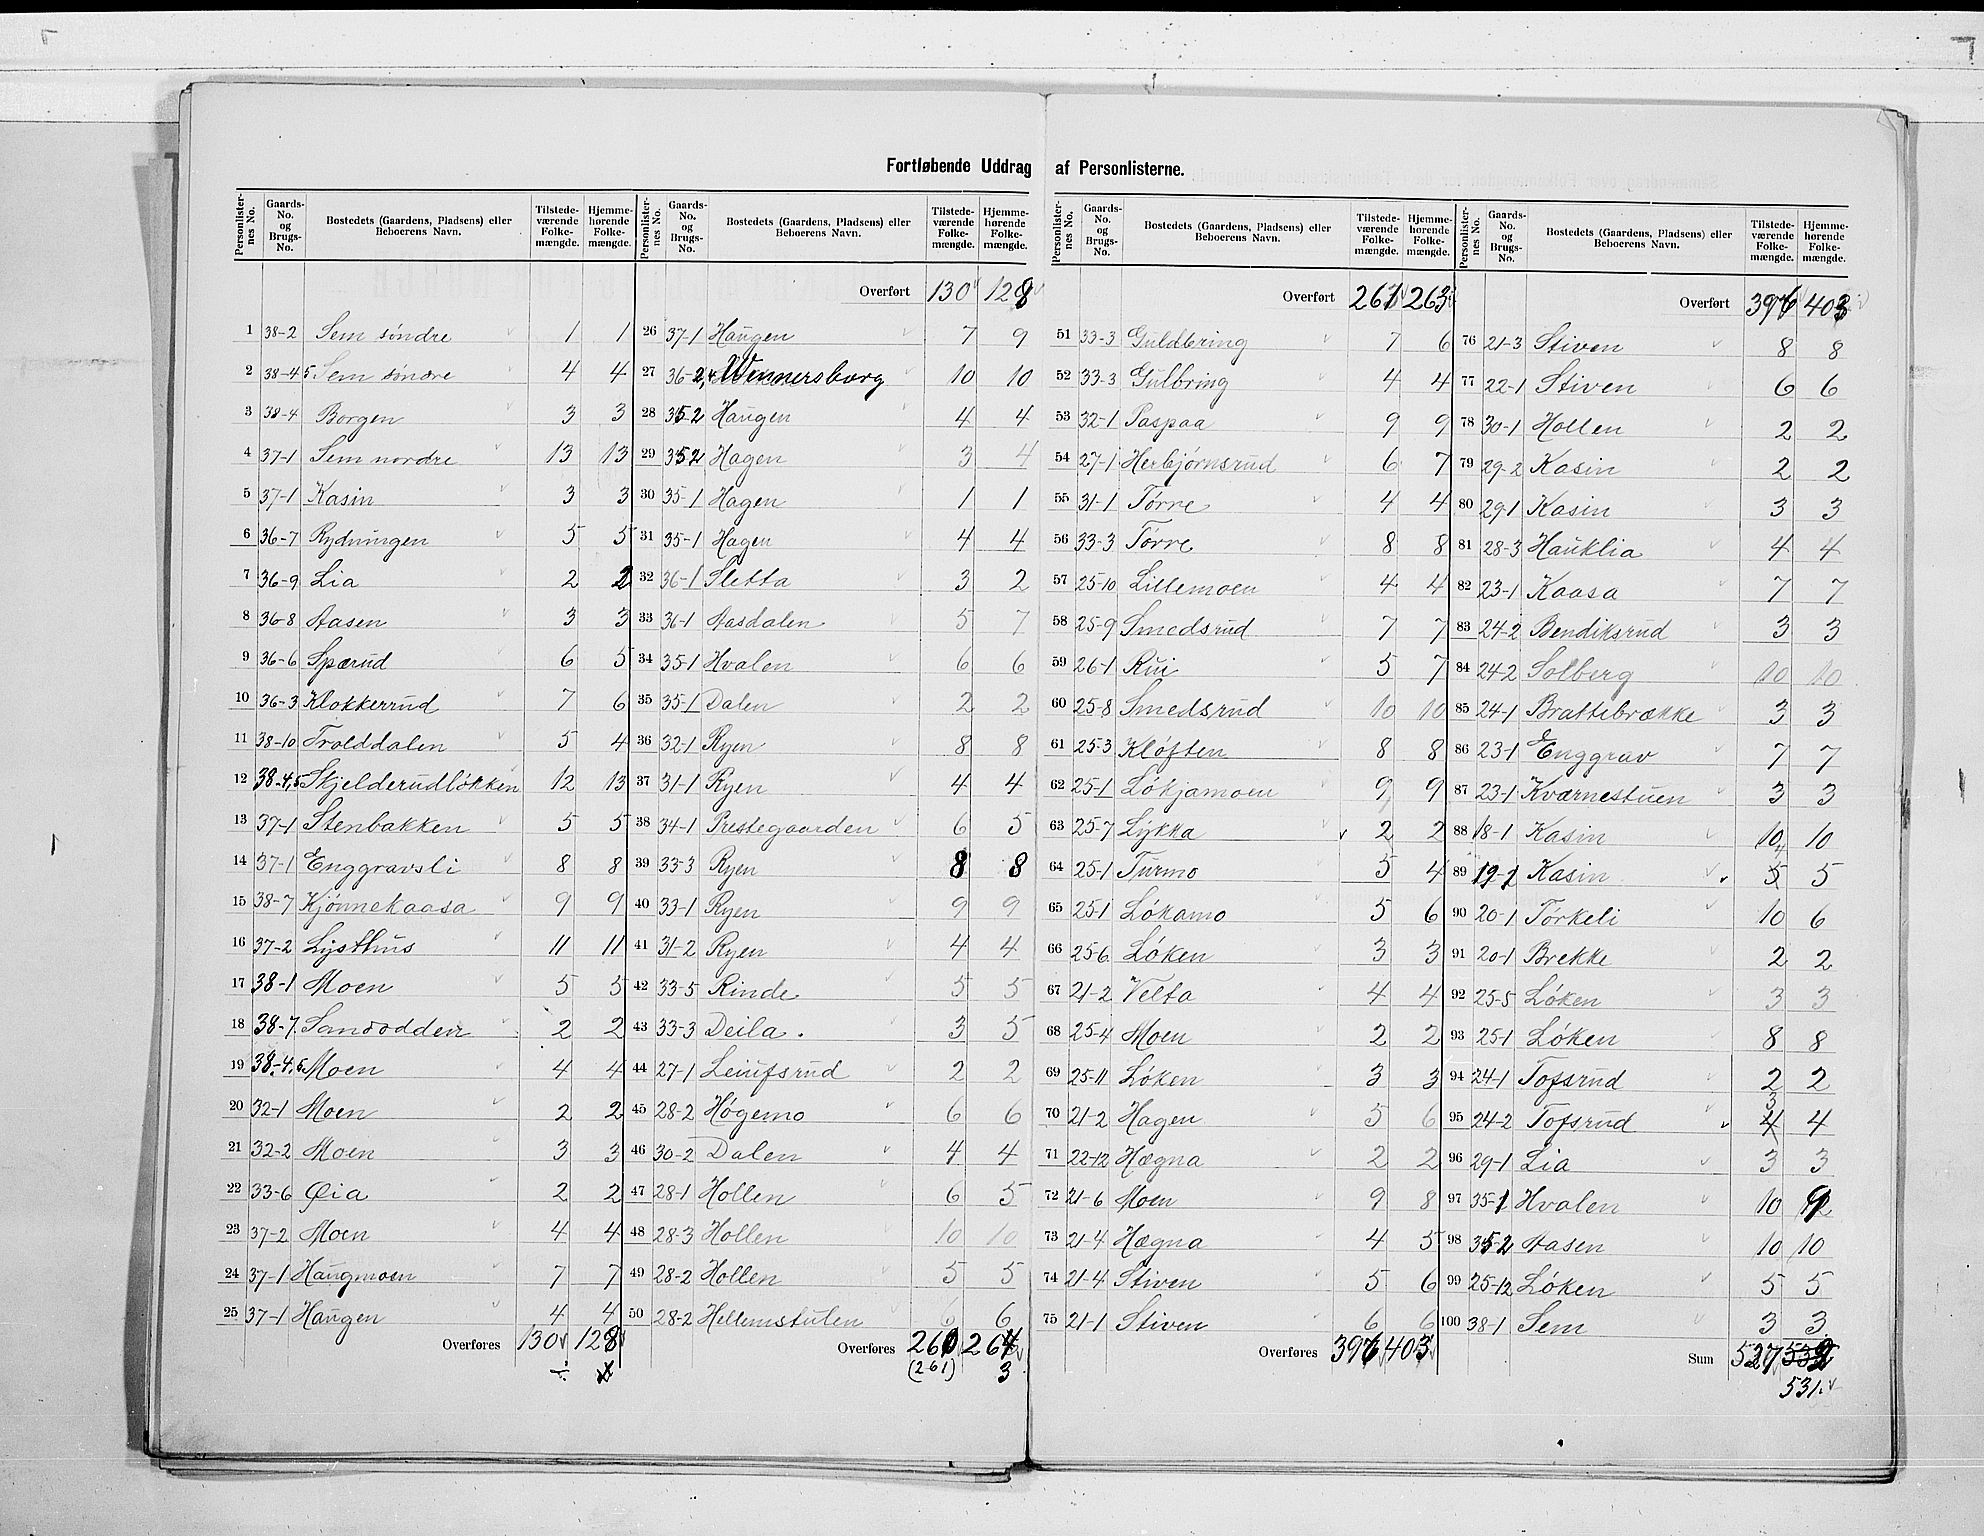 Fortløbende Uddrag af Personlisterne.
Personlister-nes No. Gaards-No. og Brugs-No. Bostedets (Gaardens, Pladsens) eller Beboerens Navn. Tilstede-værende Folke-mængde. Hjemme-hørende Folke-mængde.
1 38-2 Sem söndre 1 1
2 38-4 5 Sem söndre 4 4
3 38-4 Borgen 3 3
4 37-1 Sem nordre 13 13
5 37-1 Kasin 3 3
6 36-7 Rydningen 5 5
7 36-9 Lia 2 2
8 36-8 Aasen 3 3
9 36-6 Spærud 6 5
10 36-3 Klokkerrud 7 6
11 38-10 Trolddalen 5 4
12 38-4,5 Skjelderudløkken 12 13
13 37-1 Stenbakken 5 5
14 37-1 Enggravsli 8 8
15 38-7 Kjønnekaasa 9 9
16 37-2 Lysthus 11 11
17 38-1 Moen 5 5
18 38-7 Sandodden 2 2
19 38-4,5 Moen 4 4
20 32-1 Moen 2 2
21 32-2 Moen 3 3
22 33-6 Øia 2 2
23 37-2 Moen 4 4
24 37-1 Haugmoen 7 7
25 37-1 Haugen 4 4
Overføres 130 128
Personlister-nes No. Gaards-No. og Brugs-No. Bostedets (Gaardens, Pladsens) eller Beboerens Navn. Tilstede-værende Folke-mængde. Hjemme-hørende Folke-mængde.
Overført 130 128
26 37-1 Haugen 7 9
27 36-2,4 Wennersborg 10 10
28 35-2 Haugen 4 4
29 35-2 Hagen 3 4
30 35-1 Hagen 1 1
31 35-1 Hagen 4 4
32 36-1 Sletta 3 2
33 36-1 Aasdalen 5 7
34 35-1 Hvalen 6 6
35 35-1 Dalen 2 2
36 32-1 Ryen 8 8
37 31-1 Ryen 4 4
38 34-1 Prestegaarden 6 5
39 33-3 Ryen 8 8
40 33-1 Ryen 9 9
41 31-2 Ryen 4 4
42 33-5 Rinde 5 5
43 33-3 Deila. 3 5
44 27-1 Leiufsrud 2 2
45 28-2 Høgemo 6 6
46 30-2 Dalen 4 4
47 28-1 Hollen 6 5
48 28-3 Hollen 10 10
49 28-2 Hollen 5 5
50 28-2 Hellemstulen 6 6
Overføres 260 264
(261) 3
Personlister-nes No. Gaards-No. og Brugs-No. Bostedets (Gaardens, Pladsens) eller Beboerens Navn. Tilstede-værende Folke-mængde. Hjemme-hørende Folke-mængde.
Overført 261 263
51 33-3 Guldbring 7 6
52 33-3 Gulbring 4 4
53 32-1 Paspaa 9 9
54 27-1 Herbjørnsrud 6 7
55 31-1 Tørre 4 4
56 33-3 Tørre 8 8
57 25-10 Lillemoen 4 4
58 25-9 Smedsrud 7 7
59 26-1 Rui 5 7
60 25-8 Smedsrud 10 10
61 25-3 Kløften 8 8
62 25-1 Løkjamoen 9 9
63 25-7 Lykka 2 2
64 25-1 Turmo 5 4
65 25-1 Løkamo 5 6
66 25-6 Løken 3 3
67 21-2 Velta 4 4
68 25-4 Moen 2 2
69 25-11 Løken 3 3
70 21-2 Hagen 5 6
71 22-12 Hægna 2 2
72 21-6 Moen 9 8
73 21-4 Hægna 4 5
74 21-4 Stiven 5 6
75 21-1 Stiven 6 6
Overføres 396 403
Personlister-nes No. Gaards-No. og Brugs-No. Bostedets (Gaardens, Pladsens) eller Beboerens Navn. Tilstede-værende Folke-mængde. Hjemme-hørende Folke-mængde.
Overført 396 403
76 21-3 Stiven 8 8
77 22-1 Stiven 6 6
78 30-1 Hollen 2 2
79 29-2 Kasin 2 2
80 29-1 Kasin 3 3
81 28-3 Hauklia 4 4
82 23-1 Kaasa 7 7
83 24-2 Bendiksrud 3 3
84 24-2 Solberg 10 10
85 24-1 Brattebrække 3 3
86 23-1 Enggrav 7 7
87 23-1 Kværnestuen 3 3
88 18-1 Kasin 10 10
89 19-1 Kasin 4 5 5
90 20-1 Tørkeli 10 6
91 20-1 Brekke 2 2
92 25-5 Løken 3 3
93 25-1 Løken 8 8
94 24-1 Tofsrud 2 2
95 24-2 Tofsrud 3 4 4
96 29-1 Lia 3 3
97 35-1 Hvalen 10 9
98 35-2 Aasen 10 10
99 25-12 Løken 5 5
100 38-1 Sem 3 3
Sum 527 532
531.